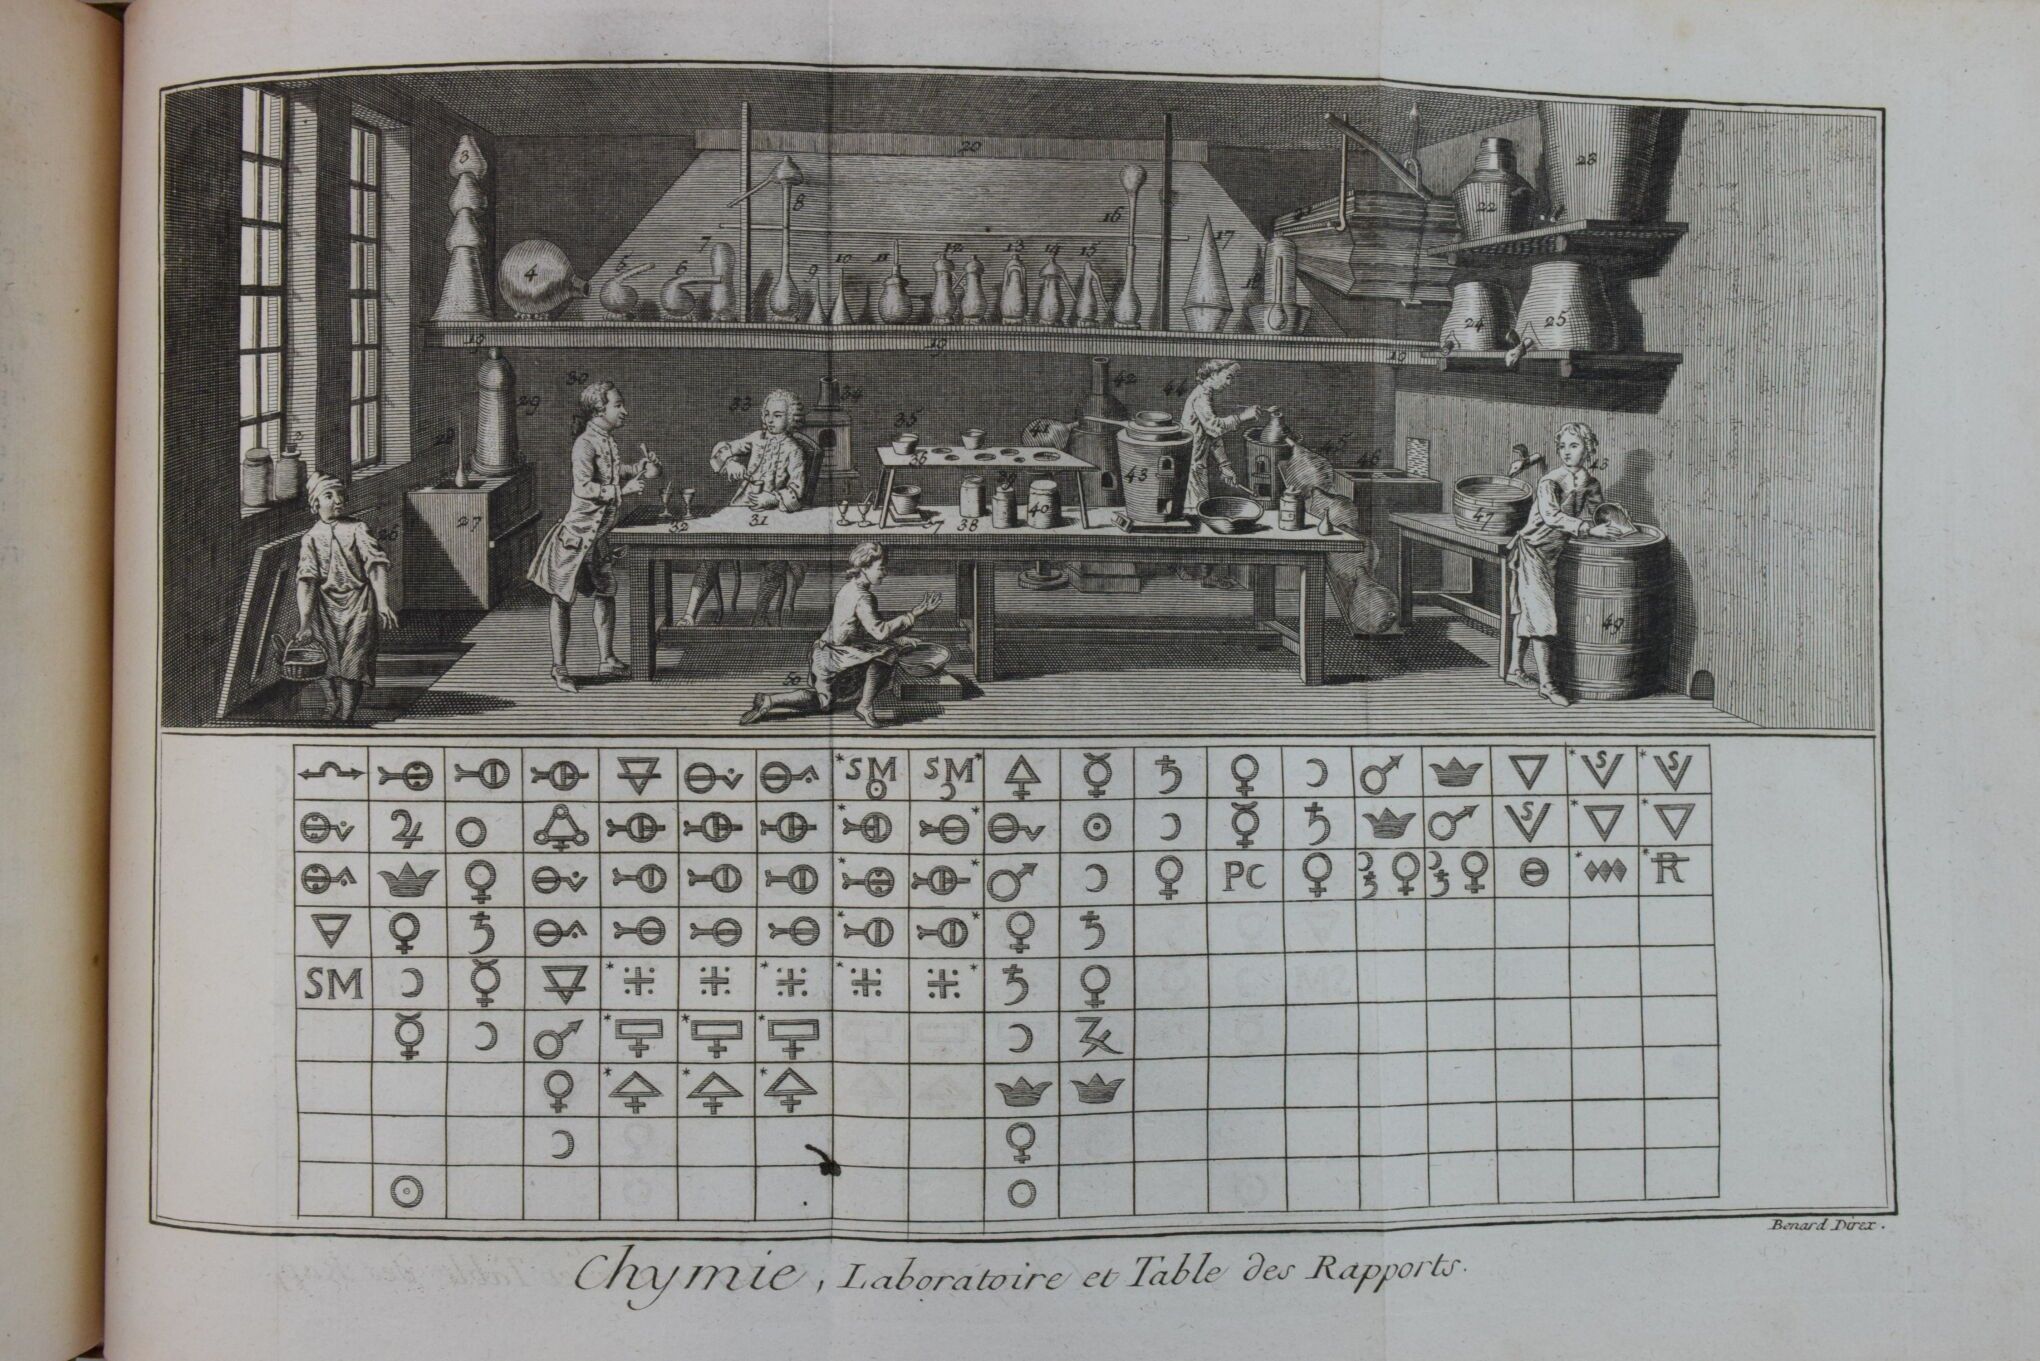 20
3
8
23
4
7
16
22
5
6
9
10
11
12
13
14
15
17
18
24
25
19
19
19
30
29
33
34
42
44
35
41
28
36
45
46
43
26
27
32
31
37
38
39
40
47
49
50
SM SM
PC
SM
Benard Direx.
Chymie, Laboratoire et Table des Rapports.